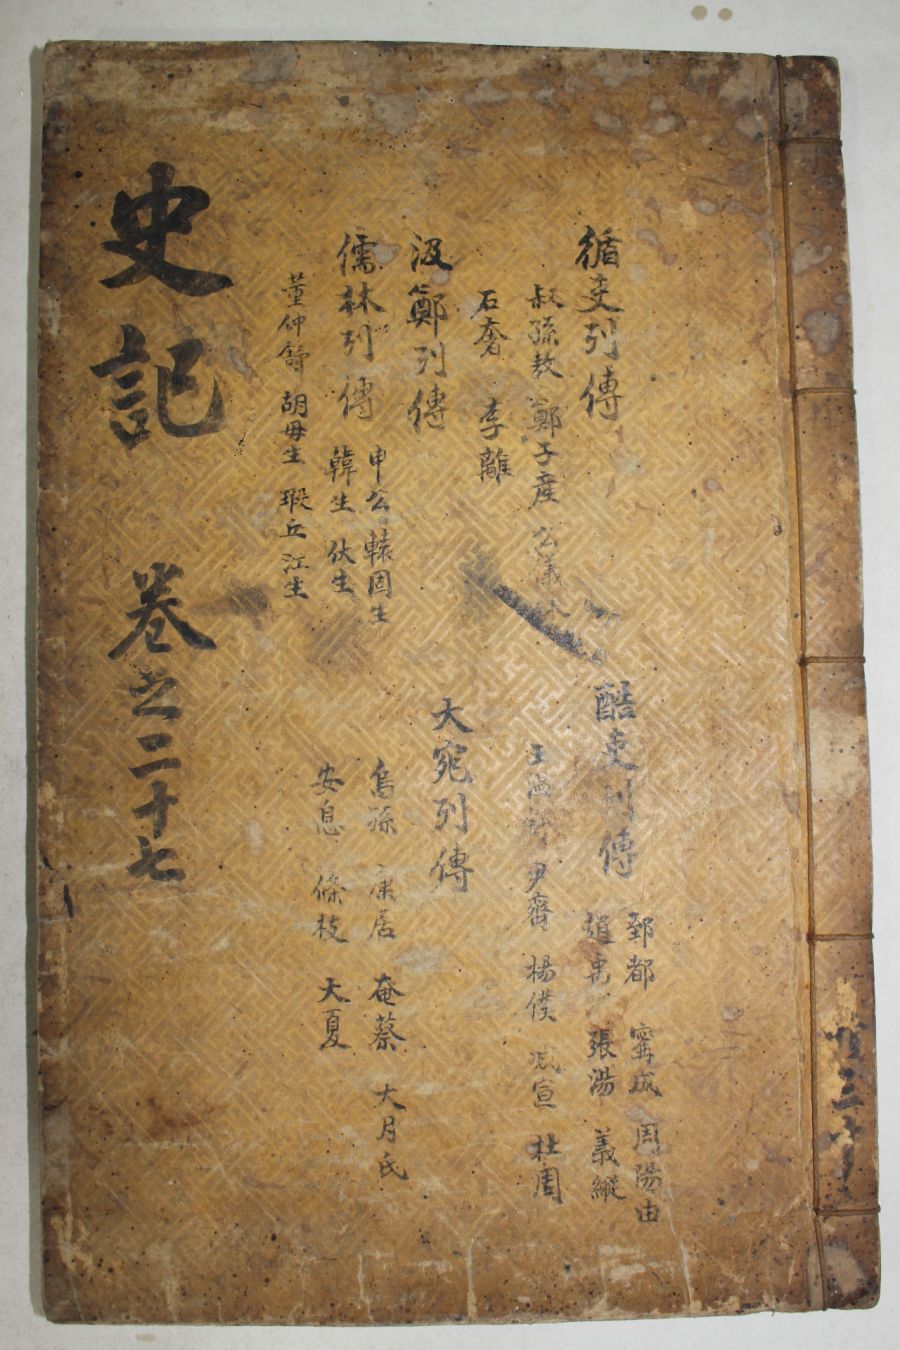 循吏列傳
叔孫敖 鄭子産 公儀
石奢 李離
汲鄭列傳
儒林列傳
申公 轅固生
韓生 伏生
董仲舒 胡毋生 瑕丘江生
酷吏列傳
郅都 甯成 周陽由
趙禹 張湯 義縱
王溫舒 尹齊 楊僕 減宣 杜周
大宛列傳
烏孫 康居 奄蔡 大月氏
安息 條枝 大夏
史記 卷之二十七